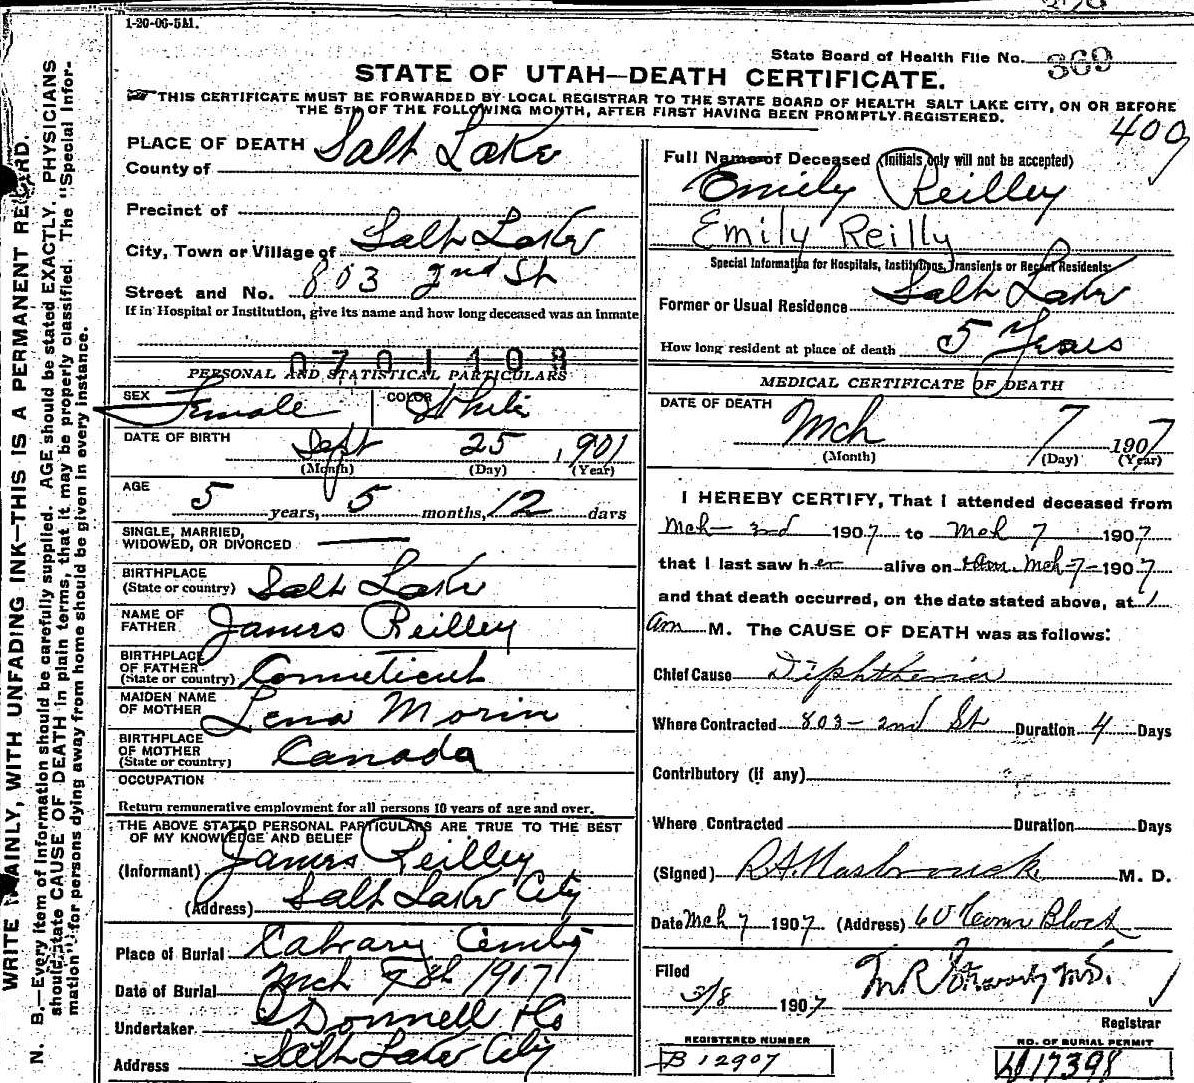 1-20-06-5M.
State Board of Health File No. 369
STATE OF UTAH—DEATH CERTIFICATE.
THIS CERTIFICATE MUST BE FORWARDED BY LOCAL REGISTRAR TO THE STATE BOARD OF HEALTH SALT LAKE CITY, ON OR BEFORE
THE 5TH OF THE FOLLOWING MONTH, AFTER FIRST HAVING BEEN PROMPTLY REGISTERED.
400
WRITE PLAINLY, WITH UNFADING INK—THIS IS A PERMANENT RECORD.
N. B.—Every item of information should be carefully supplied. AGE should be stated EXACTLY. PHYSICIANS
should state CAUSE OF DEATH in plain terms, that it may be properly classified. The "Special Infor-
mation" for persons dying away from home should be given in every instance.
PLACE OF DEATH
County of Salt Lake
Precinct of
City, Town or Village of Salt Lake
Street and No. 803 2nd St
If in Hospital or Institution, give its name and how long deceased was an inmate
0701408
PERSONAL AND STATISTICAL PARTICULARS
SEX Female COLOR White
DATE OF BIRTH Sept 25, 1901
(Month) (Day) (Year)
AGE 5 years, 5 months, 12 days
SINGLE, MARRIED,
WIDOWED, OR DIVORCED —
BIRTHPLACE
(State or country) Salt Lake
NAME OF
FATHER James Reilley
BIRTHPLACE
OF FATHER
(State or country) Conneticut
MAIDEN NAME
OF MOTHER Lena Morin
BIRTHPLACE
OF MOTHER
(State or country) Canada
OCCUPATION
Return remunerative employment for all persons 10 years of age and over.
THE ABOVE STATED PERSONAL PARTICULARS ARE TRUE TO THE BEST
OF MY KNOWLEDGE AND BELIEF
(Informant) James Reilley
(Address) Salt Lake City
Place of Burial Calvary
Date of Burial Mch
Undertaker O'Donnell & Co
Address Salt Lake City
Full Name of Deceased (Initials only will not be accepted)
Emily Reilley
Emily Reilly
Special Information for Hospitals, Institutions, Transients or Recent Residents:
Former or Usual Residence Salt Lake
How long resident at place of death 5 Years
MEDICAL CERTIFICATE OF DEATH
DATE OF DEATH
Mch 7 1907
(Month) (Day) (Year)
I HEREBY CERTIFY, That I attended deceased from
Mch 2nd 1907 to Mch 7 1907
that I last saw her alive on Mch 7 1907
and that death occurred, on the date stated above, at 1
am M. The CAUSE OF DEATH was as follows:
Chief Cause Diphtheria
Where Contracted 803-2nd St Duration 4 Days
Contributory (if any)
Where Contracted Duration Days
(Signed) M. D.
Date Mch 7 1907 (Address) Block
Filed
3/8 1907
Registrar
REGISTERED NUMBER
B 12907
NO. OF BURIAL PERMIT
17398